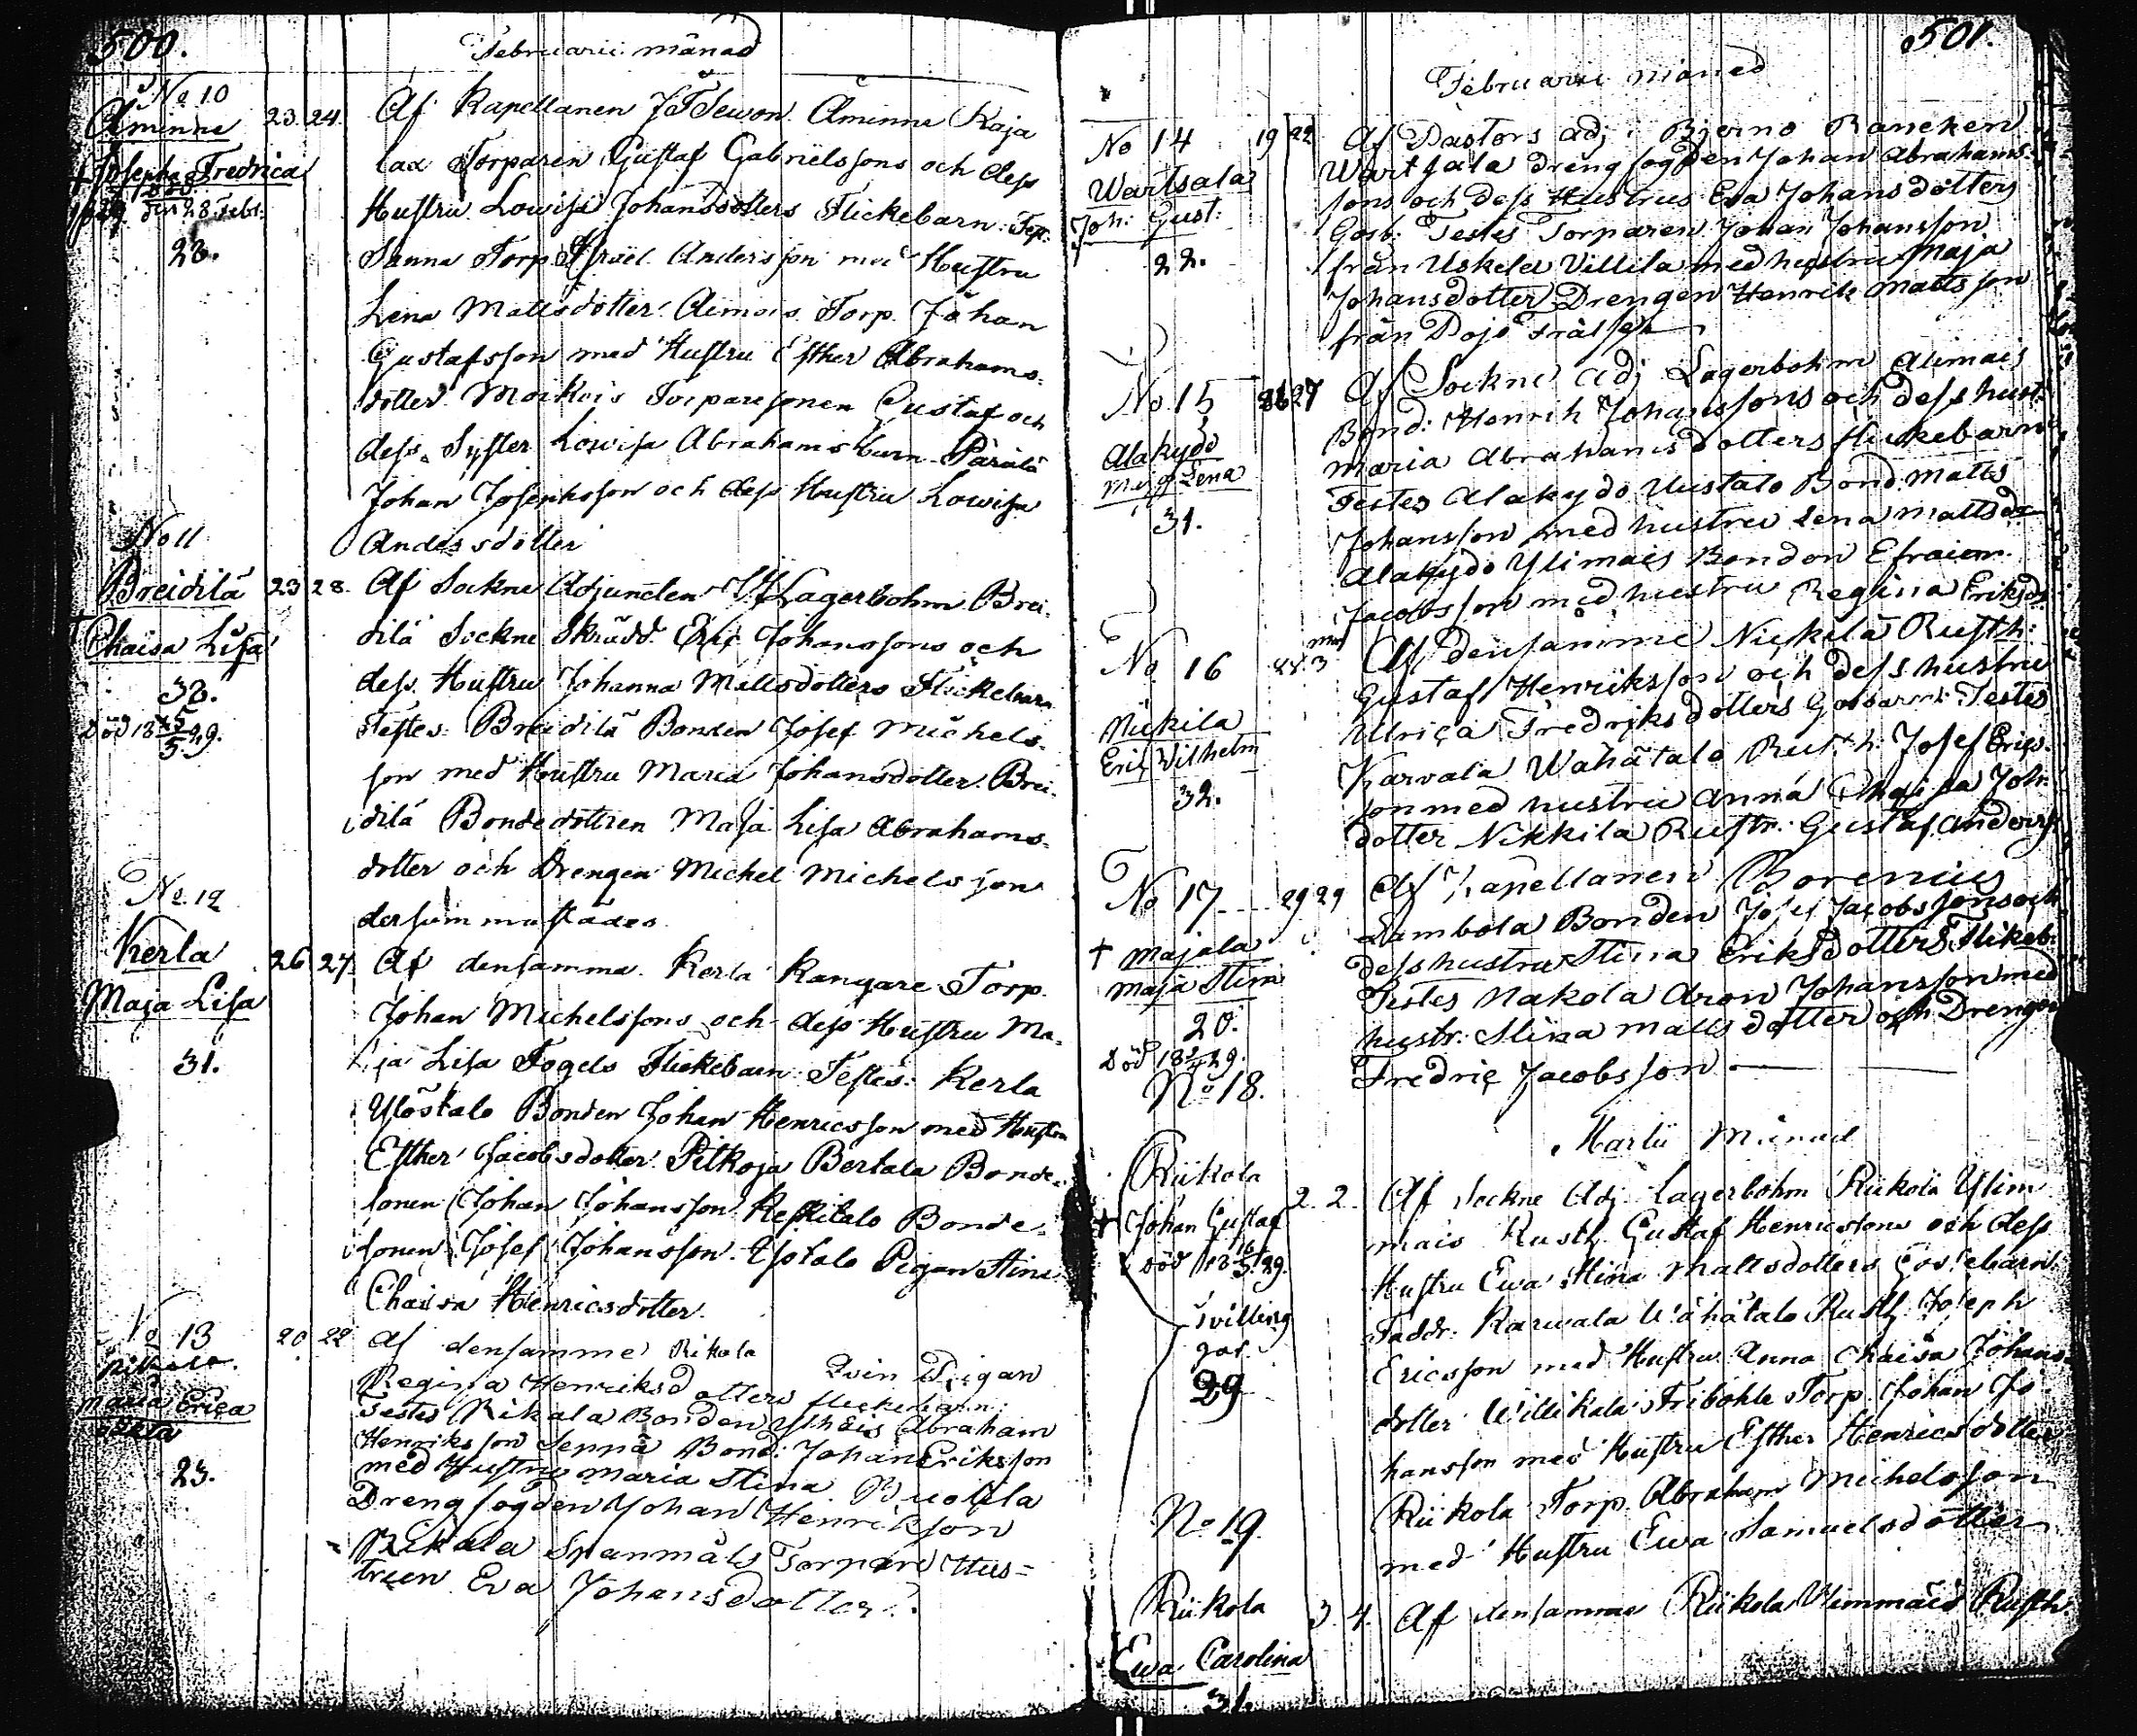 500.
Februarii månad
No 10
Åminne 23. 24. Af Kapellanen J F Sewon Åminne Kaja
† Josepha Fredrica lax Torparen Gustaf Gabrielssons och dess
den 28 Febr. Hustru Lowisa Johansdotters Flickebarn. Test:
28. Sanna Torp. Israel Andersson med Hustru
Lena Mattsdotter. Aimois Torp. Johan
Gustafsson med Hustru Esther Abrahams-
dotter Moikois Torparesonen Gustaf och
dess Syster Lowisa Abrahams Barn Pärälä
Johan Josephsson och dess Hustru Lowisa
Andersdotter
No 11
Breidilä 23 28. Af Sockne Adjuncten Lagerbohm Brei-
† Chaisa Lisa dilä Sockne Skrädd. Eric Johanssons och
32. dess Hustru Johanna Mattsdotters Flickebarn
Död 18 25/5 29. Testes Breidilä Bonden Josef Michels-
son med Hustru Maria Johansdotter. Brei-
dilä Bondedottren Maja Lisa Abrahams-
dotter och Drengen Michel Michelsson
dersammastädes
No. 12
Kerla 26 27 Af densamma Kerla Kangare Torp.
Maja Lisa Johan Michelssons och dess Hustru Ma-
31. ja Lisa Fogels Flickebarn Testes: Kerla
Ylöstalo Bonden Johan Henricsson med Hustru
Esther Jacobsdotter. Pitkoja Bertala Bonde-
sonen Johan Johansson Keskitalo Bonde-
sonen Josef Johansson. Ysotalo Pigan Stina
Chaisa Henricsdotter.
No 13 20 22 Af densamme Rikala
Rikala. Qvin Pigan
Maria Erica Regina Henriksdotters flickebarn:
oäkta Testes Rikala Bonden Abraham
23. Henriksson Seppä Bond: Johan Eriksson
med Hustru Maria Stina Buotila
Drengfogden Johan Henriksson
Rikala Spanmåls Torpare Hus=
truen Eva Johansdotter.
501.
Februarii månad
No 14 19 22 Af Pastors adj: i Bjerno Rancken
Wartsala Wartsala Drengfogden Johan Abrahams-
Joh: Gust: sons och dess Hustrus Eva Johansdotters
22. Gosb: Testes Torparen Johan Johansson
från Uskela Villila med hustru Maja
Johansdotter Drengen Henrik Mattsson
från Pojo
No 15 26 27 Af Sockne adj Lagerbohm Alimais
Alakydö Bond: Henrik Johanssons och dess hust:
Maj Lena Maria Abrahamsdotters flickebarn
31. Testes Alakydo Uustalo Bond. Matts
Johansson med hustru Lena Mattsd
Alakydo Ylimais Bonden Efraim
Jacobsson med hustru Regina Eriksd
No 16 mars 3 Af densamme Nickilä Rusth:
Nickila Gustaf Henriksson och dess hustru
Eric Wilhelm Ulrica Fredriksdotters Gossbarn: Testes
32. Karvala Wähätalo Rusth. Josef Erics-
son med hustru Anna Chaisa Joh:
dotter Nikkila Rusth: Gustaf Anderss
No 17 29 29 Af Kapellanen Borenius
† Majala Lambola Bonden Josef Jacobssons och
Maja Stina dess hustru Stina Eriksdotters Flikeb:
20. Testes Nakola Aron Johansson med
Död 18 29. hustr: Stina Mattsdotter och Drengen
Fredric Jacobsson
No 18.
Martii Månad
Riikola 2. 2. Af Sockne Adj. Lagerbohm Riikola Ylim
† Johan Gustaf mais Rusth. Gustaf Henricssons och dess
död 18 16/3 29. Hustru Ewa Stina Mattsdotters Gossebarn.
Tvilling Faddr: Karwala Wähätalo Rusth. Joseph
gar. Ericsson med Hustru Anna Chaisa Johans-
29 dotter Willikala Fribohle Torp. Johan Jo
hansson med Hustru Esther Henricsdotter
Riikola Torp. Abraham Michelsson
No 19. med Hustru Ewa Samuelsdotter
Riikola 3. 4. Af densamme Riikola Ylimmäis Rusth.
Ewa Carolina
31.